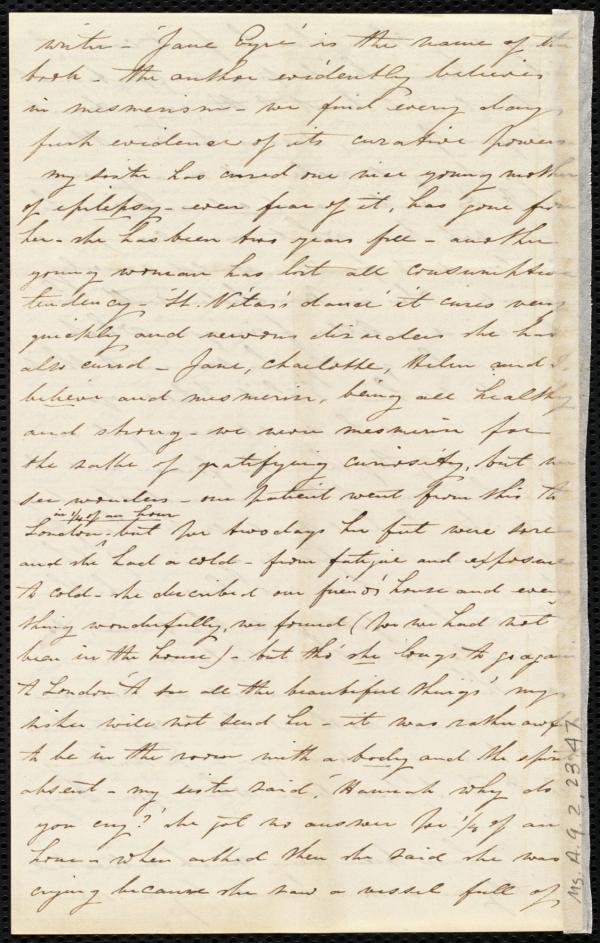 writer - 'Jane Eyre' is the name of the
book - the author evidently believes
in mesmerism - we find every day
fresh evidence of its curative powers
my sister has cured one nice young mother
of epilepsy - even fear of it, has gone from
her - she has been two years free - another
young woman has lost all consumptive
tendency - 'St. Vitas's dance' it cures very
quickly and nervous disorders she has
also cured - Jane, Charlotte, Helen and I,
believe and mesmerise, being all healthy
and strong - we never mesmerise for
the sake of gratifying curiosity, but we
see wonders - one patient went from this to
in 1/4 of an hour
London - but for two days her feet were sore
and she had a cold - from fatigue and exposure
to cold - she described our friend's house and every
thing wonderfully, we found (for we had not
been in the house) - but tho' she longs to go again
to London 'to see all the beautiful things' my
sister will not send her - it was rather awful
to be in the room with a body and the spirit
absent - my sister said, 'Hannah why do
you cry?' she got no answer for 1/4 of an
hour - when asked then she said she was
crying because she saw a vessel full of
Ms. A. 9. 2 23.47